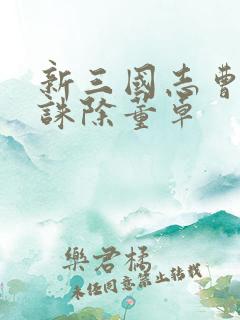 新三國志曹
誅除董卓
樂君橘
未经同意禁止转载